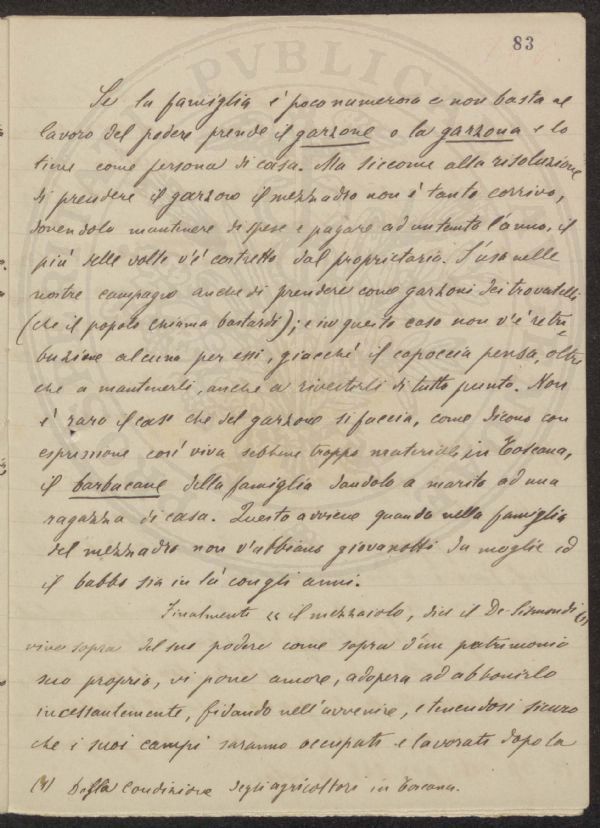 83
PVBLIC
Se la famiglia è poco numerosa e non basta al
lavoro del podere prende il garzone o la garzona e lo
tiene come persona di casa. Ma siccome alla risoluzione
di prendere il garzone il mezzadro non è tanto corrivo,
dovendolo mantenere di spese e pagare ad un tanto l'anno, il
più delle volte v'è costretto dal proprietario. S'usa nelle
nostre campagne anche di prendere come garzoni dei trovatelli
(che il popolo chiama bastardi); e in questo caso non v'è retri-
buzione alcuna per essi, giacchè il capoccia pensa, oltre
che a mantenerli, anche a rivestirli di tutto punto. Non
è raro il caso che del garzone si faccia, come dicono con
espressione così viva sebbene troppo materiale in Toscana,
il barbacane della famiglia dandolo a marito ad una
ragazza di casa. Questo avviene quando nella famiglia
del mezzadro non v'abbiano giovanotti da moglie ed
il babbo sia in là congli anni.
Finalmente « il mezzaiolo, dice il De-Sismondi (1)
vive sopra del suo podere come sopra d'un patrimonio
suo proprio, vi pone amore, adopera ad abbonirlo
incessantemente, fidando nell'avvenire, e tenendosi sicuro
che i suoi campi saranno occupati e lavorati dopo la
(1) Della Condizione degli agricoltori in Toscana.